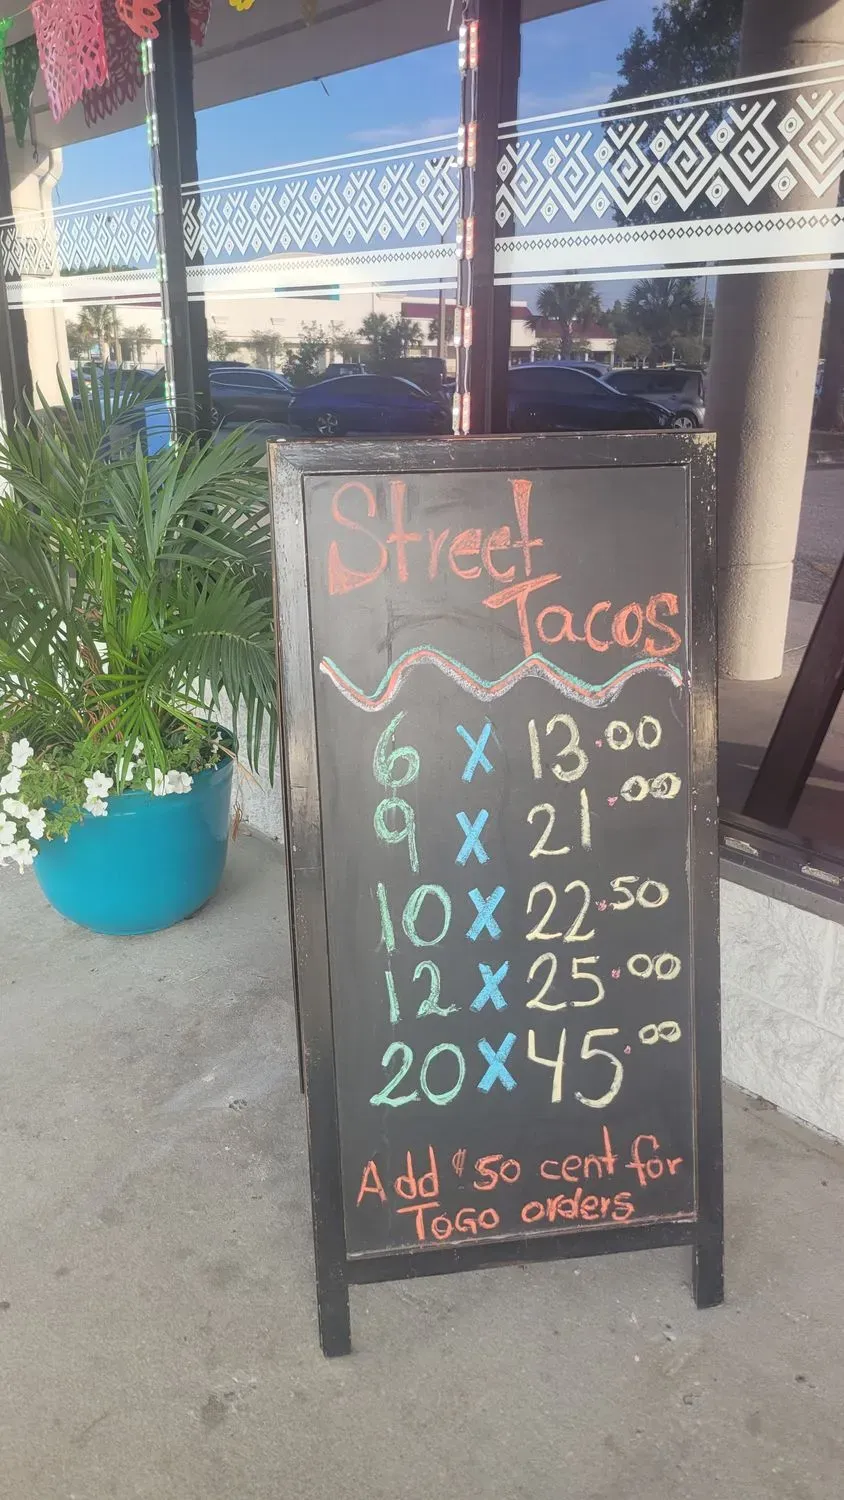 Street
Tacos
6 x 13.00
9 x 21.00
10 x 22.50
12 x 25.00
20 x 45.00
Add $50 cent for
ToGo orders